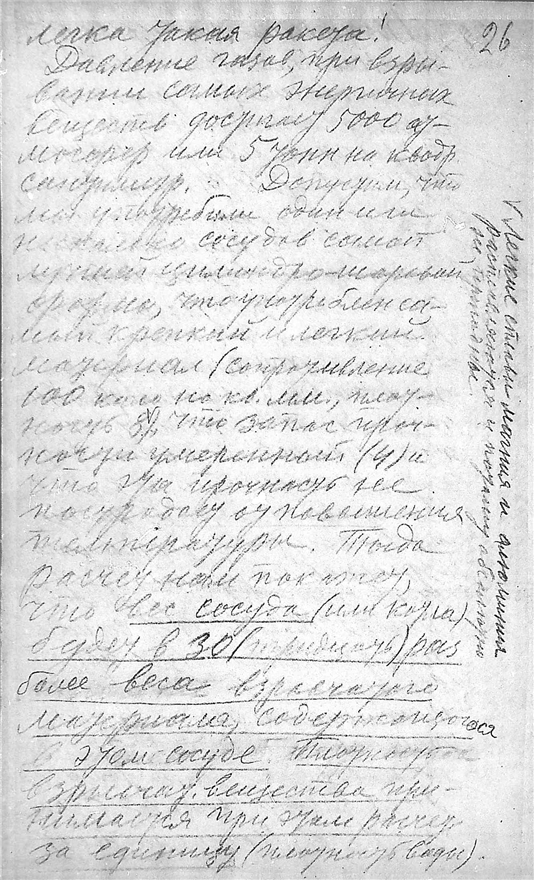 26
легка такая ракета!
Давление газов, при взры-
вании самых энергичных
веществ достигает 5000 ат-
мосфер или 5 тонн на квадр.
сантиметр. Допустим, что
мы употребили один или
несколько сосудов самой
лучшей цилиндро-шаровой
формы, что употреблен са-
мый крепкий и легкий
материал (сопротивление
100 кило на кв. мм., плот-
ность 8)V, что запас проч-
ности умеренный (4) и
что эта прочность не
пострадает от повышения
температуры. Тогда
расчет нам покажет,
что вес сосуда (или котла)
будет в 30 (тридцать) раз
более веса взрывчатого
материала, содержащегося
в этом сосуде. Плотность
взрывчат. вещества при-
нимается при этом расчете
за единицу (плотность воды).
V Легкие сплавы магния и алюминия
и потому
не пригодны.